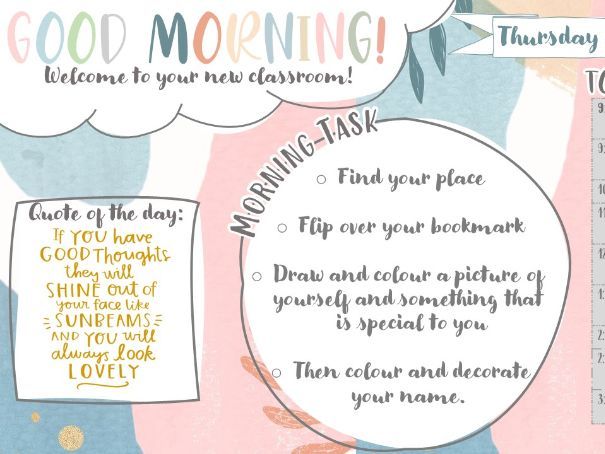 GOOD MORNING!
Welcome to your new classroom!
Thursday
MORNING TASK
Find your place
Flip over your bookmark
Draw and colour a picture of
yourself and something that
is special to you
Then colour and decorate
your name.
Quote of the day:
IF YOU have
GOOD Thoughts
they will
SHINE out of
your face like
SUNBEAMS
AND YOU will
always look
LOVELY